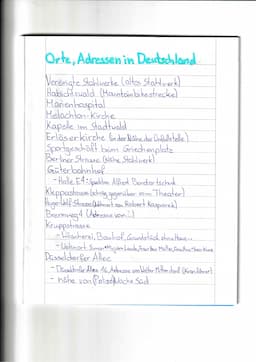 Orte, Adressen in Deutschland
Vereinigte Stahlwerke (altes Stahlwerk)
Habichtwald (Mountainbikestrecke)
Marienhospital
Melachton-Kirche
Kapelle im Stadtwald
Erlöserkirche (in der Nähe der Unfallstelle)
Sportgeschäft beim Griechenplatz
Berliner Strasse (Nähe Stahlwerk)
Güterbahnhof
- Halle E4: Spedition Alfred Bandartschek
Kleppostrasse (schräg gegenüber vom Theater)
Hugo-Wolf-Strasse (Wohnort von Robert Kasparek)
Brennweg 4 (Adresse von
Kruppstrasse
- Wäscherei, Bauhof, Grundstück ohne Haus
- Wohnort: Simon
Düsseldorfer Allee
- Düsseldorfer Allee 16, Adresse von Walter Mitterndorf
- Nähe von Polizei Wache Süd